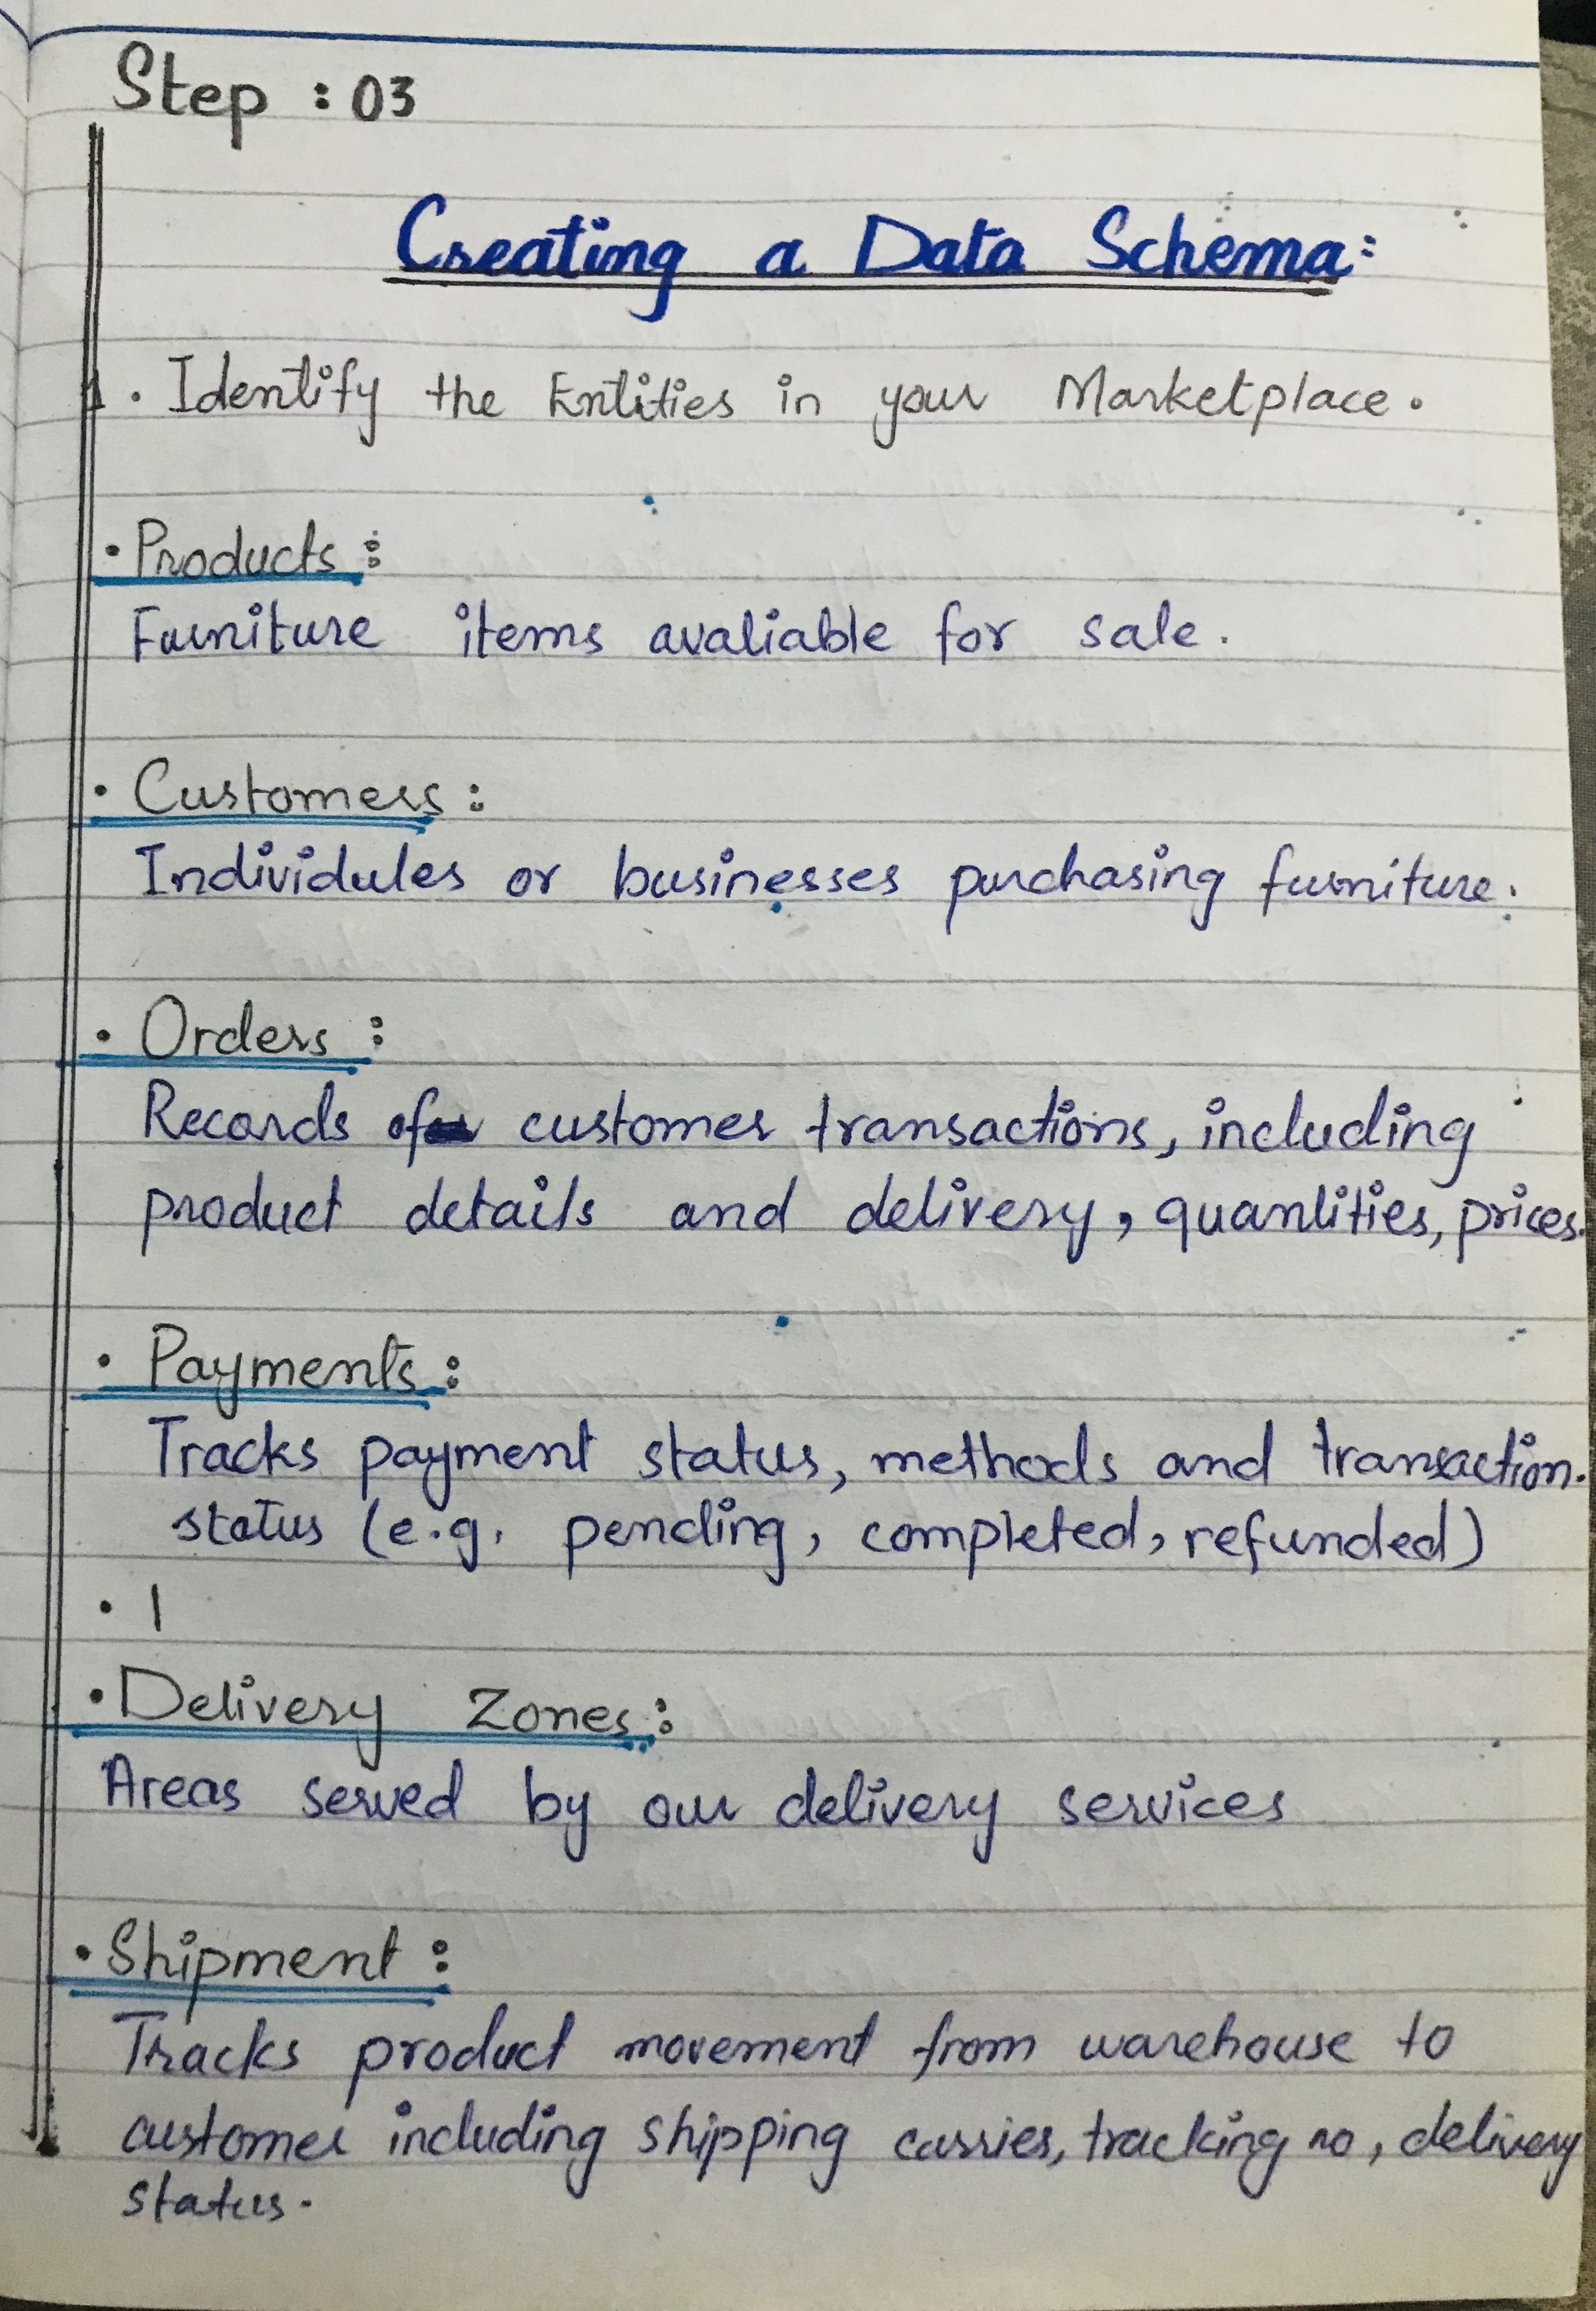 Step : 03
Creating a Data Schema:
1. Identify the Entities in your Marketplace.
• Products :
Furniture items avaliable for sale.
• Customers :
Individules or businesses purchasing furniture.
• Orders :
Records of customer transactions, including
product details and delivery, quantities, prices.
• Payments :
Tracks payment status, methods and transaction.
status (e.g. pending, completed, refunded)
• I
• Delivery Zones :
Areas served by our delivery services
• Shipment :
Tracks product movement from warehouse to
customer including shipping carries, tracking no, delivery
status.